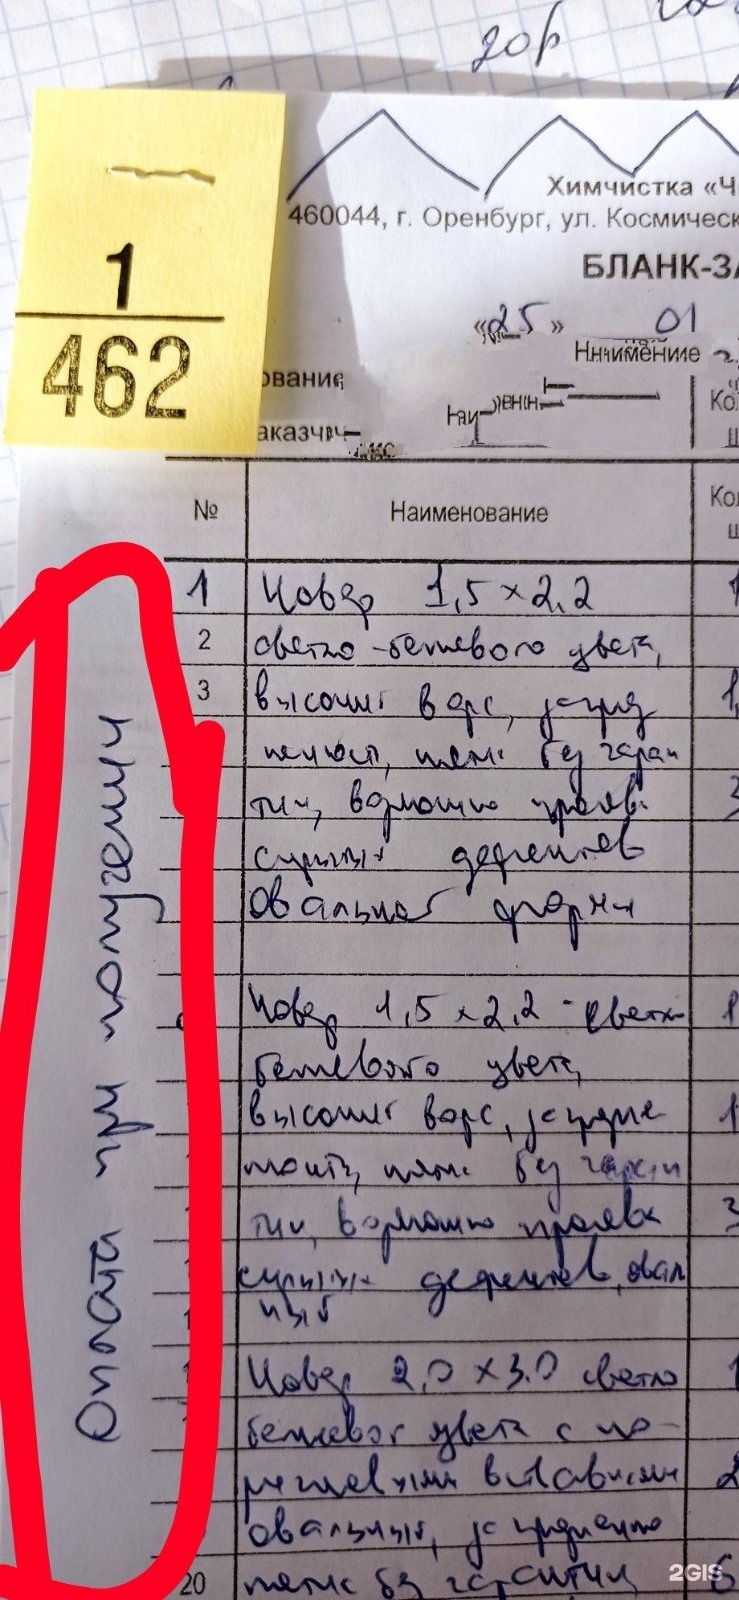 гор
1
462
Химчистка «Ч
460044, г. Оренбург, ул. Космическ
БЛАНК-ЗА
«25» 01
Наименование
ование
№ Наименование Кол
1 Ковер 1,5×2,2 1
2 светло-бежевого цвета,
3 высокий ворс, загряз 1,
ненность, пятна без гаран
тии, возможно прояв. 3
скрытых дефектов
Овальной формы
Ковер 1,5×2,2 - светло 1
бежевого цвета,
высокий ворс, загрязне 1
ность, пятна без гаран
тии, возможно прояв 3
скрытых дефектов, овал
ный
Ковер 2,0×3.0 светло 1
бежевог цвета с ко-
ричневыми вставками 2
овальный, загрязнено
20 пятна без гарантии 6
Оплата при получении
2GIS